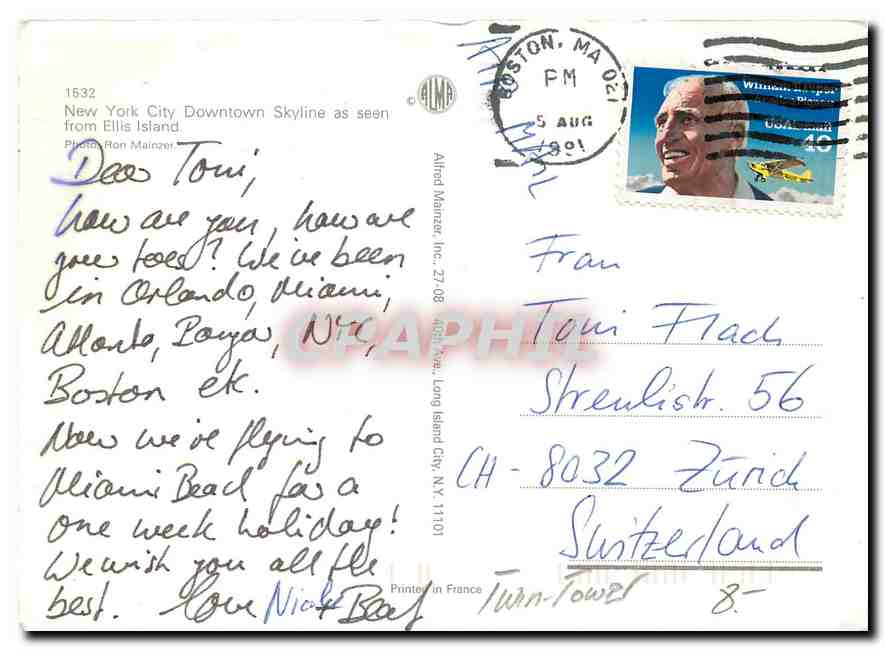 1532
New York City Downtown Skyline as seen
from Ellis Island.
Photo: Ron Mainzer
© ALMA
Dear Toni,
how are you, how are
your toes? We've been
in Orlando, Miami,
Atlanta, Bangor, NYC,
Boston etc.
Now we're flying to
Miami Beach for a
one week holiday!
We wish you all the
best. Love Nicole + Beat
Alfred Mainzer, Inc., 27-08 40th Ave., Long Island City, N.Y. 11101
Printed in France
AIR MAIL
BOSTON, MA 021
PM
5 AUG
1991
William Piper
USAirmail
40
Frau
Toni Flach
Streulistr. 56
CH-8032 Zürich
Switzerland
Twin-Tower 8.-
CPAPHIL